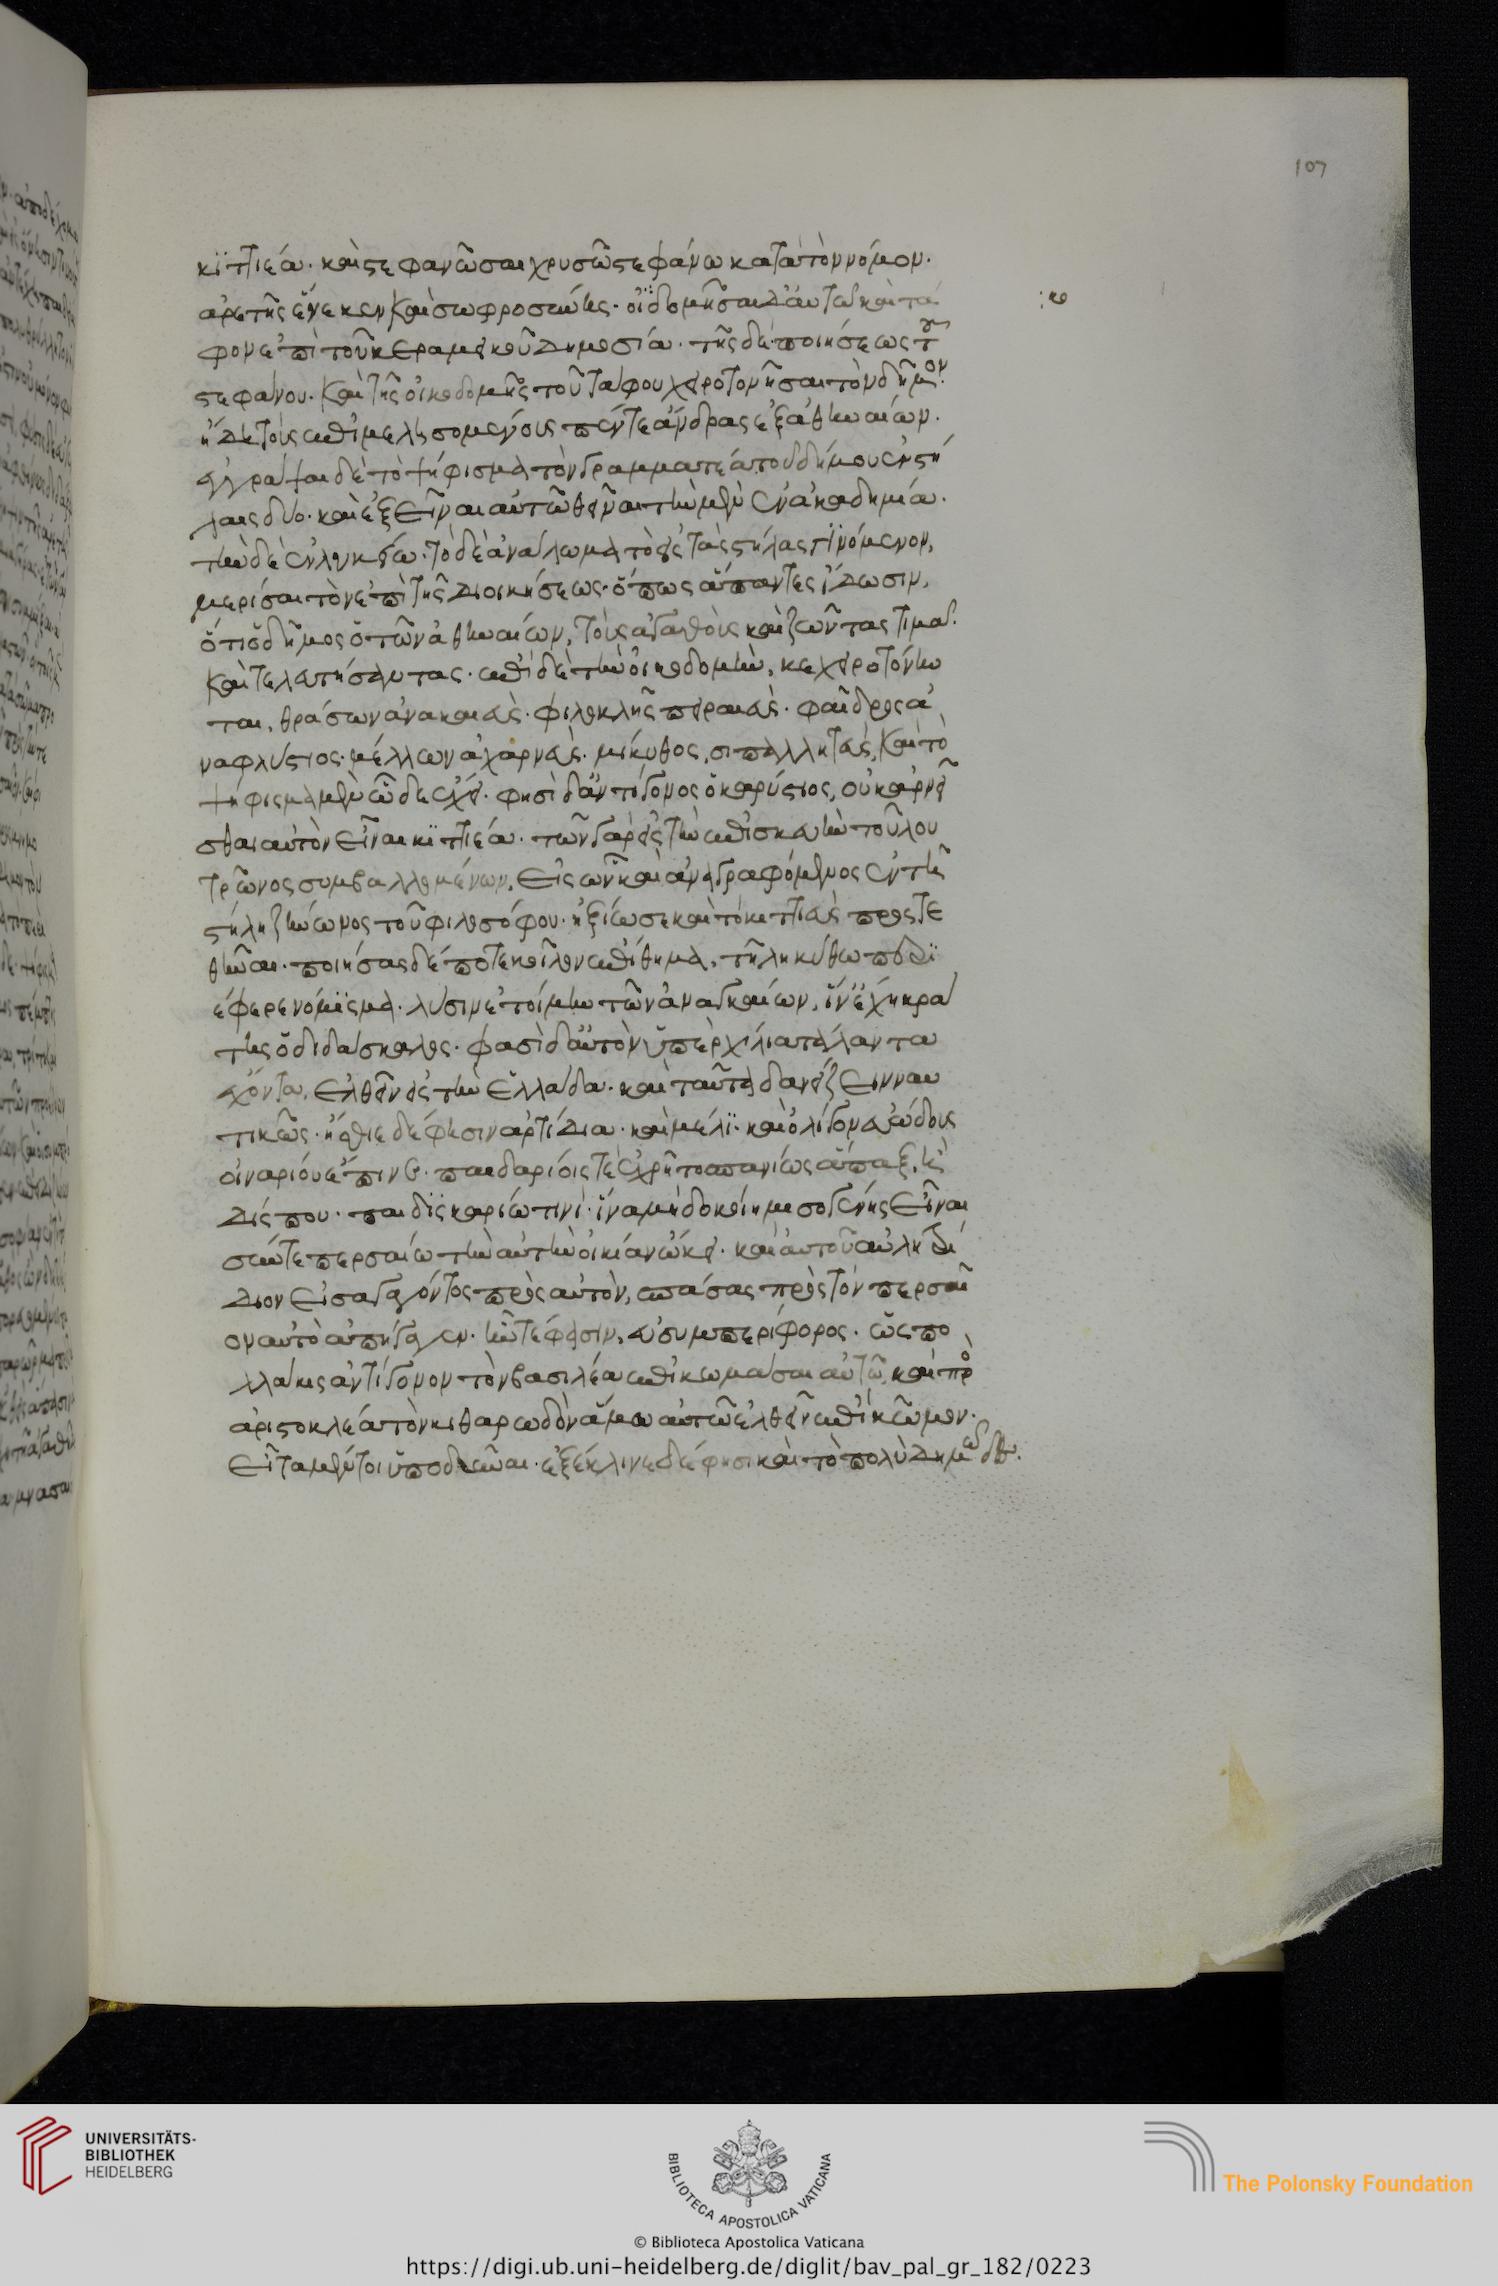 107
κϊτϊιέα· καὶ στεφανῶσαι χρυσῶ στεφάνω κατὰ τὸν νόμον·
ἀρετῆς ἕνεκεν καὶ σωφροσύνης· οἰκδομῆσαι δ' αὐτῶ καὶ τά
φον ἐπὶ τοῦ κεραμεικοῦ δημοσία· τῆς δὲ ποιήσεως τοῦ
στεφάνου· καὶ τῆς οἰκοδομῆς τοῦ τάφου χειροτονῆσαι τὸν δῆμον·
ἤδη τοὺς ἐπιμελησομένους πέντε ἄνδρας ἐξ ἀθηναίων·
ἐγγράψαι δὲ τὸ ψήφισμα τὸν γραμματέα τοῦ δήμου ἐν στή
λαις δύο· καὶ ἐξεῖναι αὐτῶ θεῖναι τὴν μὲν ἐν ἀκαδημία·
τὴν δὲ ἐν λυκείω· τὸ δὲ ἀνάλωμα τὸ εἰς τὰς στήλας γϊνόμενον,
μερίσαι τὸν ἐπὶ τῆς διοικήσεως· ὅπως ἅπαντες ἴδωσιν,
ὅτι ὁ δῆμος ὁ τῶν ἀθηναίων, τοὺς ἀγαθοὺς καὶ ζῶντας τιμᾶ·
καὶ τελευτήσαντας· ἐπὶ δὲ τὴν οἰκοδομὴν, κεχειροτόνην
ται, θράσων ἀνακαιεὺς· φιλοκλῆς πειραιεὺς· φαῖδρος ἀ
ναφλύστιος· μέλλων ἀχαρνεὺς· μίκυθος, σιπαλληττεὺς, καὶ τὸ
ψήφισμα μὲν ὧδε ἔχει· φησὶ δ' ἀντίγονος ὁ καρύστιος, οὐκ ἀρνεῖ
σθαι αὐτὸν εἶναι κϊτϊέα· τῶν γὰρ εἰς τὴν ἐπισκευὴν τοῦ λου
τρῶνος συμβαλλομένων, εἷς ὢν καὶ ἀναγραφόμενος ἐν τῆ
στήλη ζήνωνος τοῦ φιλοσόφου· ἠξίωσε καὶ τὸ κιττιεὺς προστε
θῆναι· ποιήσας δέ ποτε κοῖλον ἐπίθημα, τῆ ληκύθω ποδϊ
έφερε νόμϊσμα· λύσιν ἑτοίμην τῶν ἀναγκαίων, ἵν' ἔχη κρά
της ὁ διδάσκαλος· φασὶ δ' αὐτὸν ὑπὲρ χίλια τάλαντα
ἔχοντα, ἐλθεῖν εἰς τὴν ἑλλάδα· καὶ ταῦτα δανείζειν ναυ
τικῶς· ἤσθιε δέ φησιν ἀρτίδια· καὶ μέλϊ· καὶ ὀλίγον εὐώδους
οἰναρίου ἔπινε· παιδαρίοις τὲ ἐχρῆτο σπανίως ἅπαξ, ἢ
δίς που· παιδϊσκαρίω τινὶ· ἵνα μὴ δοκοίη μισογύνης εἶναι
σύν τε περσαίω τὴν αὐτὴν οἰκίαν ὤκει· καὶ αὐτοῦ αὐλητρί
διον εἰσαγαγόντος πρὸς αὐτὸν, σπάσας πρὸς τὸν περσαῖ
ον αὐτὸ ἀπήγαγεν· ἦν τέ φησιν, εὐσυμπερίφορος· ὡς πο
λλάκις ἀντίγονον τὸν βασιλέα ἐπικωμάσαι αὐτῶ, καὶ πρὸ
ἀριστοκλέα τὸν κιθαρωδὸν ἅμα αὐτῶ ἐλθεῖν ἐπὶ κῶμον·
εἶτα μέντοι ὑποδῦναι· ἐξέκλινε δέ φησι καὶ τὸ πολὺ δημῶδες·
UNIVERSITÄTS-
BIBLIOTHEK
HEIDELBERG
BIBLIOTECA APOSTOLICA VATICANA
© Biblioteca Apostolica Vaticana
The Polonsky Foundation
https://digi.ub.uni-heidelberg.de/diglit/bav_pal_gr_182/0223